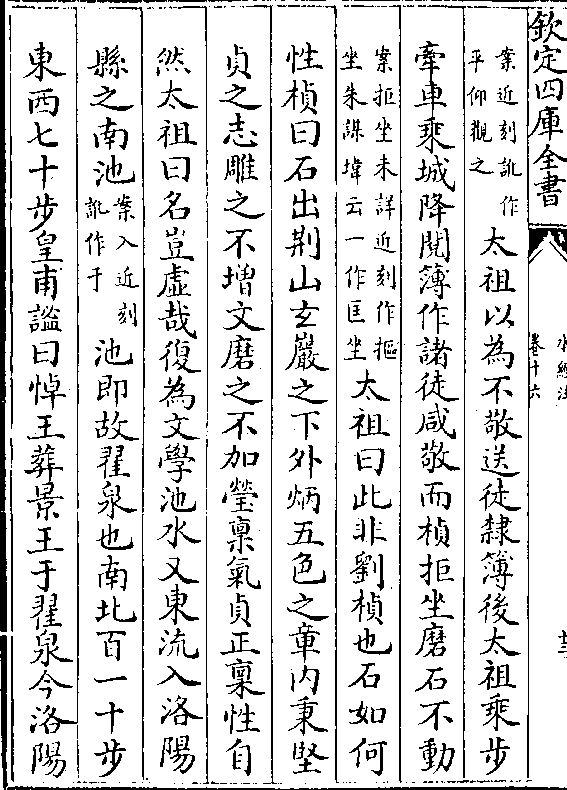 欽定四庫全書
水經注
卷十六
案近刻訛作
平仰觀之
太祖以為不敬送徒隸簿後太祖乘步
牽車乘城降閲簿作諸徒咸敬而楨拒坐磨石不動
案拒坐未詳近刻作摳
坐朱謀㙔云一作匡坐
太祖曰此非劉楨也石如何
性楨曰石出荆山玄巖之下外炳五色之章内秉堅
貞之志雕之不增文磨之不加瑩稟氣貞正稟性自
然太祖曰名豈虛哉復為文學池水又東流入洛陽
縣之南池
案入近刻
訛作于
池即故翟泉也南北百一十步
東西七十步皇甫謐曰悼王葬景王于翟泉今洛陽